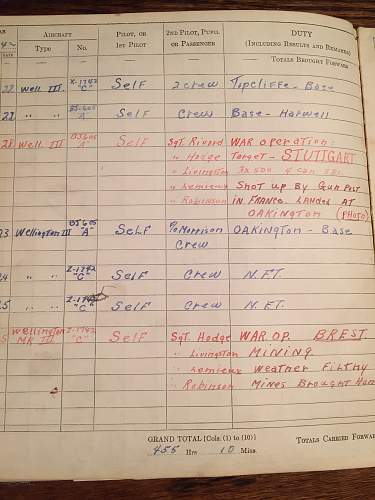 AIRCRAFT PILOT, OR 2ND PILOT, PUPIL DUTY
Type No. 1ST PILOT OR PASSENGER (INCLUDING RESULTS AND REMARKS)
— — — — TOTALS BROUGHT FORWARD
22 Well III. X-1742 "C" Self 2 crew Topcliffe - Base
22 " " BJ605 "A" Self Crew Base - Harwell
28 Well. III BJ605 "A" Self Sgt. Rivard WAR operation:
" Hodge Target - STUTTGART
" Livingston 3x500 4 can
" Lemieux Shot up By Gun Post
" Robinson in FRANCE. LANDED AT
OAKington (PHOTO)
23 Wellington III BJ605 "A" Self P/O Morrison OAKington - Base
Crew
24 " " Z-1742 "C" Self Crew N.F.T.
25 " " Z-1742 "C" Self Crew N.F.T.
Wellington Z-1742 Self Sgt. Hodge WAR. OP. BREST.
MK III "C" " Livingston MINING.
" Lemieux Weather Filthy
" Robinson Mines Brought Home
GRAND TOTAL [Cols. (1) to (10)]
455 Hrs. 10 Mins.
TOTALS CARRIED FORWARD